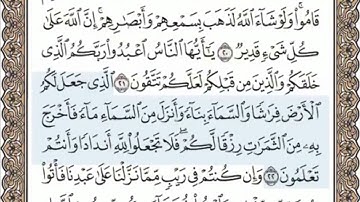 قَامُوا۟ ۚ وَلَوْ شَآءَ ٱللَّهُ لَذَهَبَ بِسَمْعِهِمْ وَأَبْصَٰرِهِمْ ۚ إِنَّ ٱللَّهَ عَلَىٰ
كُلِّ شَىْءٍ قَدِيرٌ ٢٠ يَٰٓأَيُّهَا ٱلنَّاسُ ٱعْبُدُوا۟ رَبَّكُمُ ٱلَّذِى
خَلَقَكُمْ وَٱلَّذِينَ مِن قَبْلِكُمْ لَعَلَّكُمْ تَتَّقُونَ ٢١ ٱلَّذِى جَعَلَ لَكُمُ
ٱلْأَرْضَ فِرَٰشًا وَٱلسَّمَآءَ بِنَآءً وَأَنزَلَ مِنَ ٱلسَّمَآءِ مَآءً فَأَخْرَجَ
بِهِۦ مِنَ ٱلثَّمَرَٰتِ رِزْقًا لَّكُمْ ۖ فَلَا تَجْعَلُوا۟ لِلَّهِ أَندَادًا وَأَنتُمْ
تَعْلَمُونَ ٢٢ وَإِن كُنتُمْ فِى رَيْبٍ مِّمَّا نَزَّلْنَا عَلَىٰ عَبْدِنَا فَأْتُوا۟